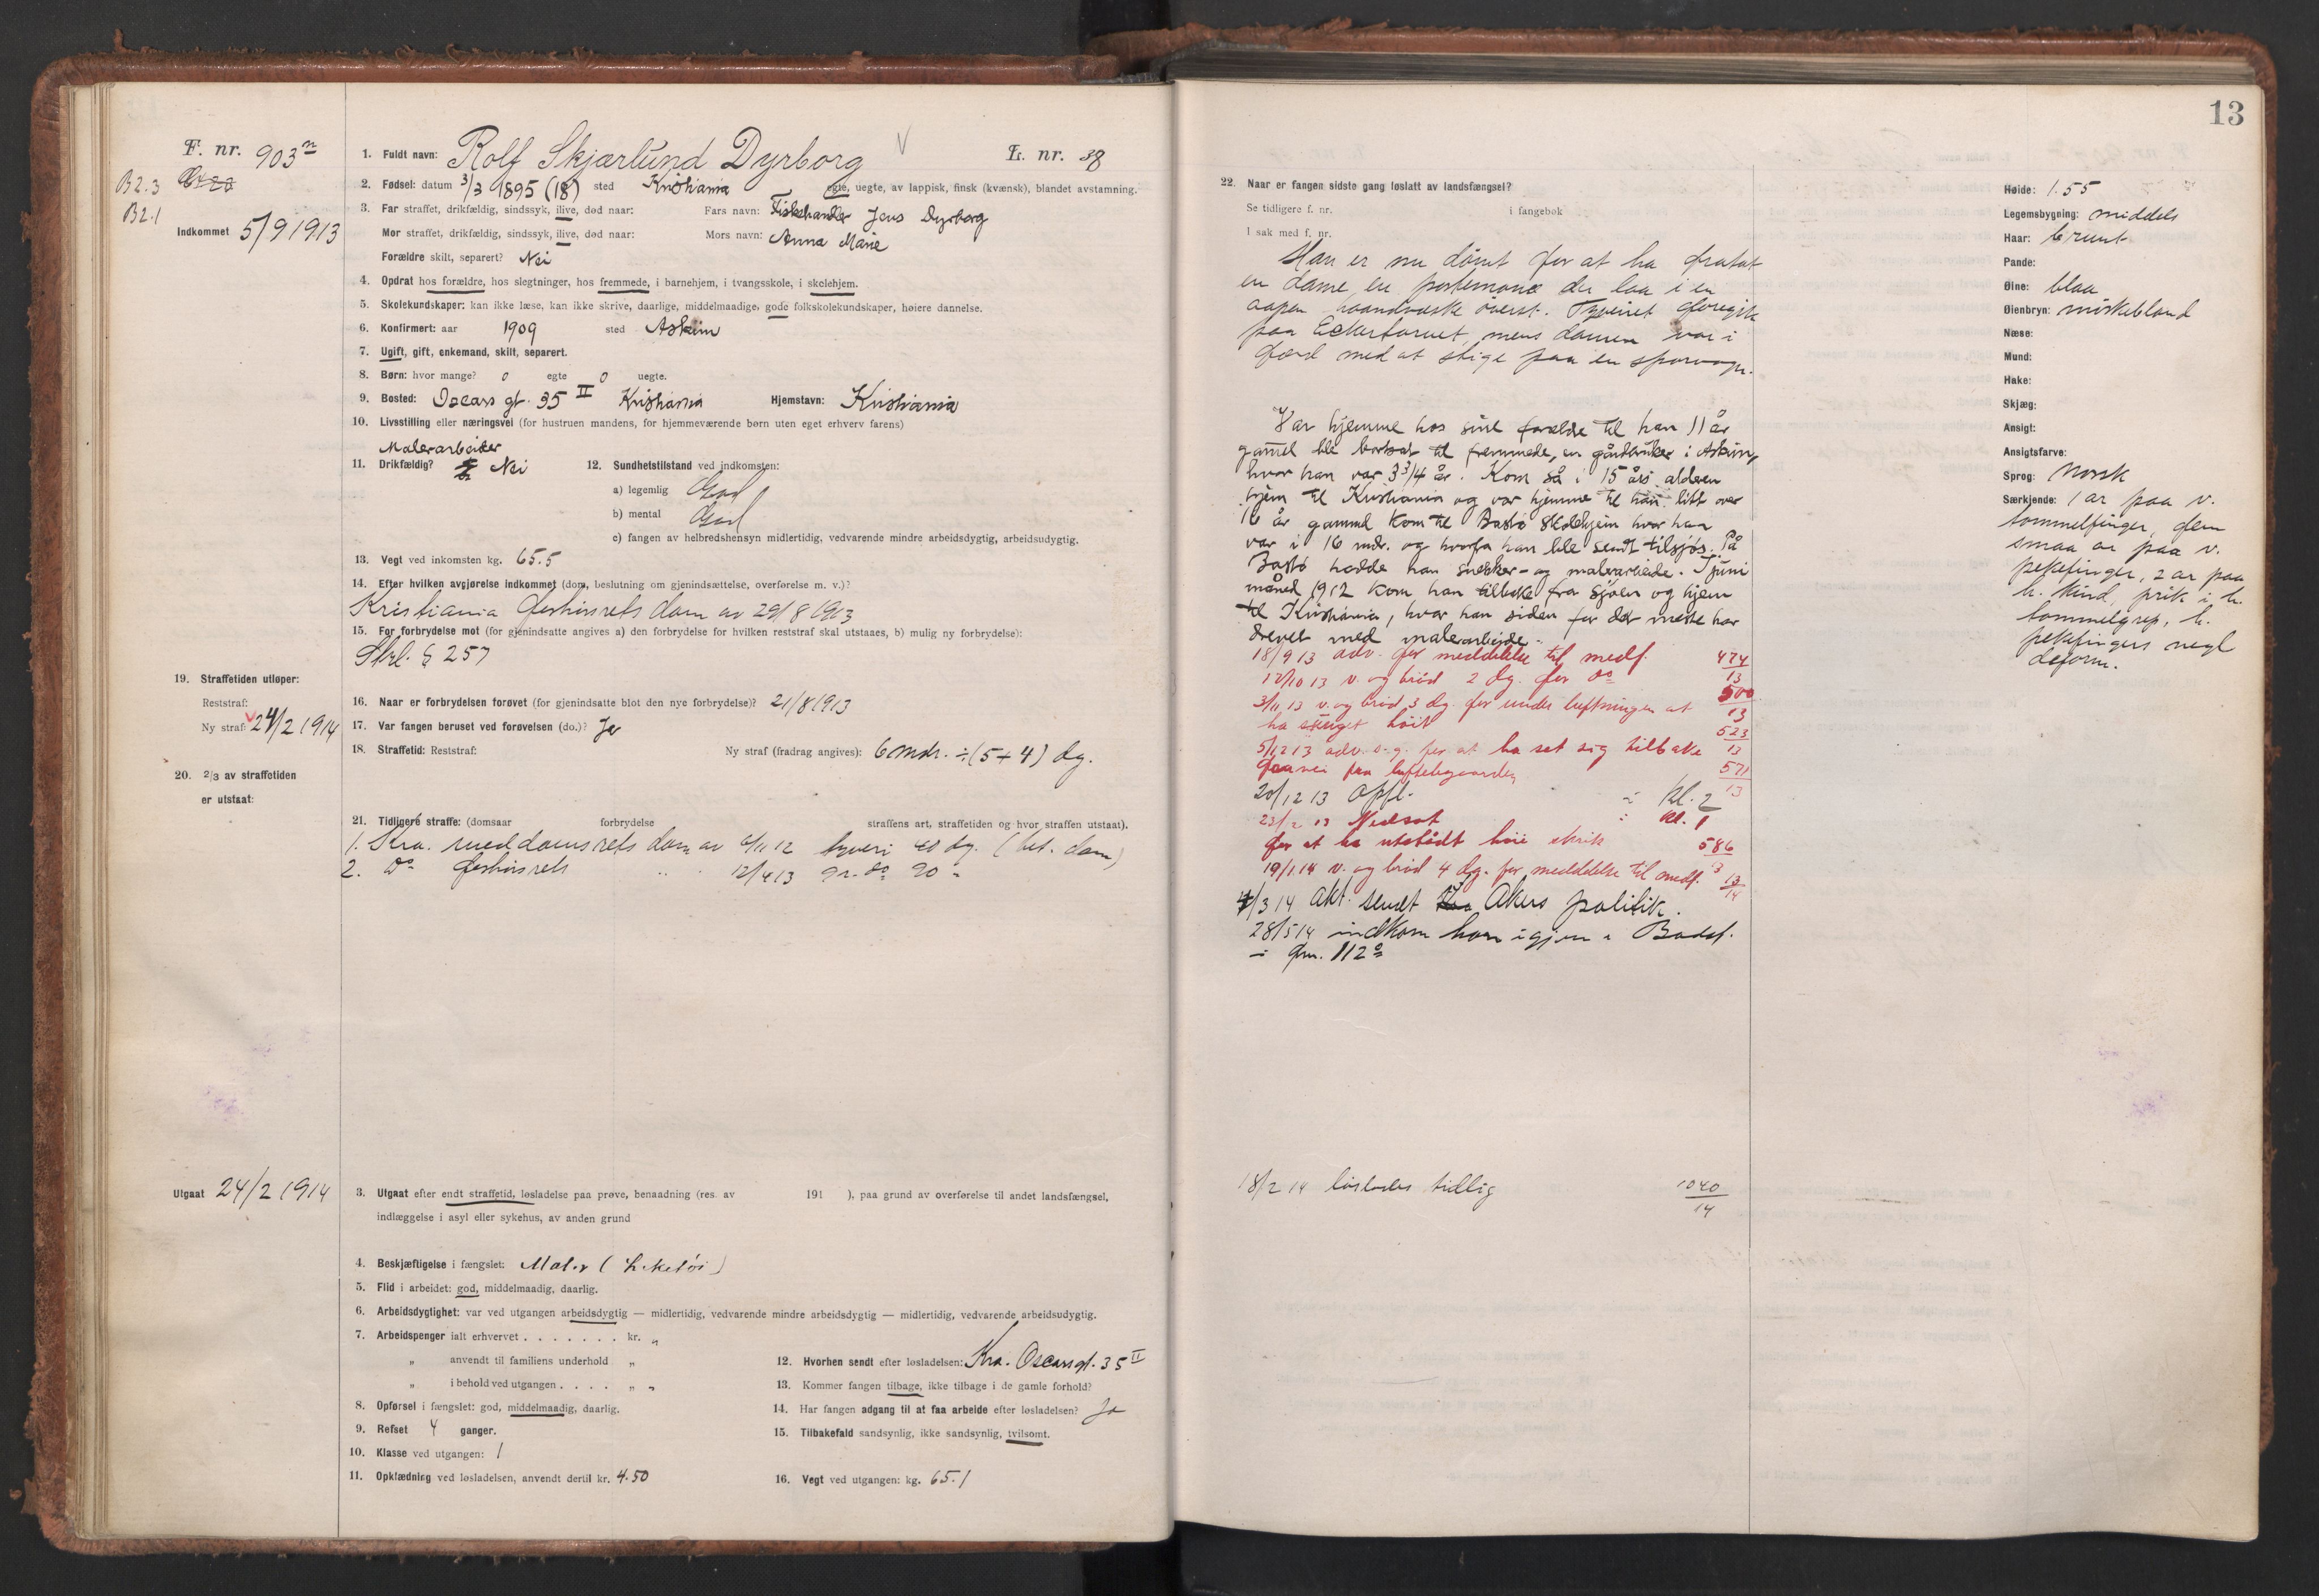 F. nr. 903ⁿ
B2.3
B2.1
Indkommet 5/9 1913
1. Fuldt navn: Rolf Skjærlund Dyrborg L. nr. 38
2. Fødsel: datum 3/3 1895 (18) sted Kristiania egte, uegte, av lappisk, finsk (kvænsk), blandet avstamning.
3. Far straffet, drikfældig, sindssyk, ilive, død naar: Fars navn: Fiskehandler Jens Dyrborg
Mor straffet, drikfældig, sindssyk, ilive, død naar: Mors navn: Anna Marie
Forældre skilt, separert? Nei
4. Opdrat hos forældre, hos slegtninger, hos fremmede, i barnehjem, i tvangsskole, i skolehjem.
5. Skolekundskaper: kan ikke læse, kan ikke skrive, daarlige, middelmaadige, gode folkskolekundskaper, høiere dannelse.
6. Konfirmert: aar 1909 sted Askim
7. Ugift, gift, enkemand, skilt, separert.
8. Børn: hvor mange? 0 egte 0 uegte.
9. Bosted: Oscars gt. 35 II Kristiania Hjemstavn: Kristiania
10. Livsstilling eller næringsvei (for hustruen mandens, for hjemmeværende børn uten eget erhverv farens)
Malerarbeider
11. Drikfældig? Nei 12. Sundhetstilstand ved indkomsten:
a) legemlig God
b) mental God
c) fangen av helbredshensyn midlertidig, vedvarende mindre arbeidsdygtig, arbeidsudygtig.
13. Vegt ved inkomsten kg. 65.5
14. Efter hvilken avgjørelse indkommet (dom, beslutning om gjenindsættelse, overførelse m. v.)?
Kristiania forhørsrets dom av 29/8 1913
15. For forbrydelse mot (for gjenindsatte angives a) den forbrydelse for hvilken reststraf skal utstaaes, b) mulig ny forbrydelse):
Strl. § 257
19. Straffetiden utløper:
Reststraf:
Ny straf: 24/2 1914
16. Naar er forbrydelsen forøvet (for gjenindsatte blot den nye forbrydelse)? 21/8 1913
17. Var fangen beruset ved forøvelsen (do.)? Ja
18. Straffetid: Reststraf: Ny straf (fradrag angives): 6 mdr. ÷ (5+4) dg.
20. 2/3 av straffetiden
er utstaat:
21. Tidligere straffe: (domsaar forbrydelse straffens art, straffetiden og hvor straffen utstaat).
1. Kra. meddomsrets dom av 6/11 12 tyveri 40 dg. (bet. dom)
2. Do forhørsrets " " 12/4 13 gr. do 90 "
Utgaat 24/2 1914
3. Utgaat efter endt straffetid, løsladelse paa prøve, benaadning (res. av 191 ), paa grund av overførelse til andet landsfængsel,
indlæggelse i asyl eller sykehus, av anden grund
4. Beskjæftigelse i fængslet: Maler (Leketøi)
5. Flid i arbeidet: god, middelmaadig, daarlig.
6. Arbeidsdygtighet: var ved utgangen arbeidsdygtig — midlertidig, vedvarende mindre arbeidsdygtig — midlertidig, vedvarende arbeidsudygtig.
7. Arbeidspenger ialt erhvervet . . . . . . . kr. "
" anvendt til familiens underhold "
" i behold ved utgangen . . . . " "
8. Opførsel i fængslet: god, middelmaadig, daarlig.
9. Refset 4 ganger.
10. Klasse ved utgangen: 1
11. Opklædning ved løsladelsen, anvendt dertil kr. 4.50
12. Hvorhen sendt efter løsladelsen: Kra. Oscarsgt. 35 II
13. Kommer fangen tilbage, ikke tilbage i de gamle forhold?
14. Har fangen adgang til at faa arbeide efter løsladelsen? Ja
15. Tilbakefald sandsynlig, ikke sandsynlig, tvilsomt.
16. Vegt ved utgangen: kg. 65.1
13
22. Naar er fangen sidste gang løslatt av landsfængsel?
Se tidligere f. nr. i fangebok
I sak med f. nr.
Han er nu dømt for at ha fratat
en dame en portemonæ der laa i en
aapen haandvæske øverst. Tyveriet foregik
paa Eckertorvet, mens damen var i
færd med at stige paa en sporvogn.
Var hjemme hos sine forældre til han 11 år
gammel ble bortsat til fremmede, en gårdbruker i Askim,
hvor han var 3 3/4 år. Kom så i 15 års alderen
hjem til Kristiania og var hjemme til han litt over
16 år gammel kom til Bastø skolehjem hvor han
var i 16 mdr. og hvorfra han ble sendt tilsjøs. På
Bastø hadde han snekker- og malerarbeide. I juni
måned 1912 kom han tilbake fra sjøen og hjem
til Kristiania, hvor han siden for det meste har
drevet med malerarbeide.
18/9 13 adv. for meddelelse til medf. 474/13
12/10 13 v. og brød 2 dg. for do 500/13
3/11 13 v. og brød 3 dg. for under luftningen at
ha sunget høit 523/13
5/12 13 adv. for at ha set sig tilbake
paa vei fra luftegaarden 571/13
20/12 13 Opfl. i kl. 2
23/12 13 Nedsat " kl. 1
for at ha utstødt høie skrik 586/13
19/1 14 v. og brød 4 dg. for meddelelse til medf. 13/14
4/3 14 Akt. sendt Akers politik.
28/5 14 indkom han igjen i Bodsf.
fnr. 112a
18/2 14 løslades tidlig 1040/14
Høide: 1.55
Legemsbygning: middels
Haar: brunt
Pande:
Øine: blaa
Øienbryn: mørkeblond
Næse:
Mund:
Hake:
Skjæg:
Ansigt:
Ansigtsfarve:
Sprog: Norsk
Særkjende: 1 ar paa v.
tommelfinger, flere
smaa ar paa v.
pekefinger, 2 ar paa
h. kind, prik i h.
tommelgrep, h.
pekefingers negl
deform.